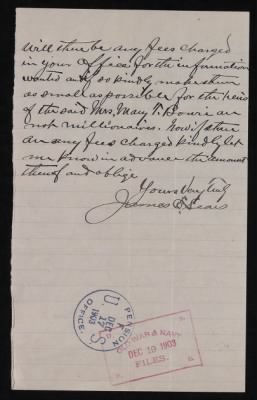 Will there be any fees charged
in your Office for the information
wanted and so kindly make them
as small as possible for the heirs
of the said Mrs. Mary T. Bowie are
not millionaires. Now if there
are any fees charged kindly let
me know in advance the amount
thereof and oblige
Yours Very Truly
James
U. S. PENSION OFFICE.
DEC 17 1903
OLD WAR & NAVY
DEC 19 1903
FILES.